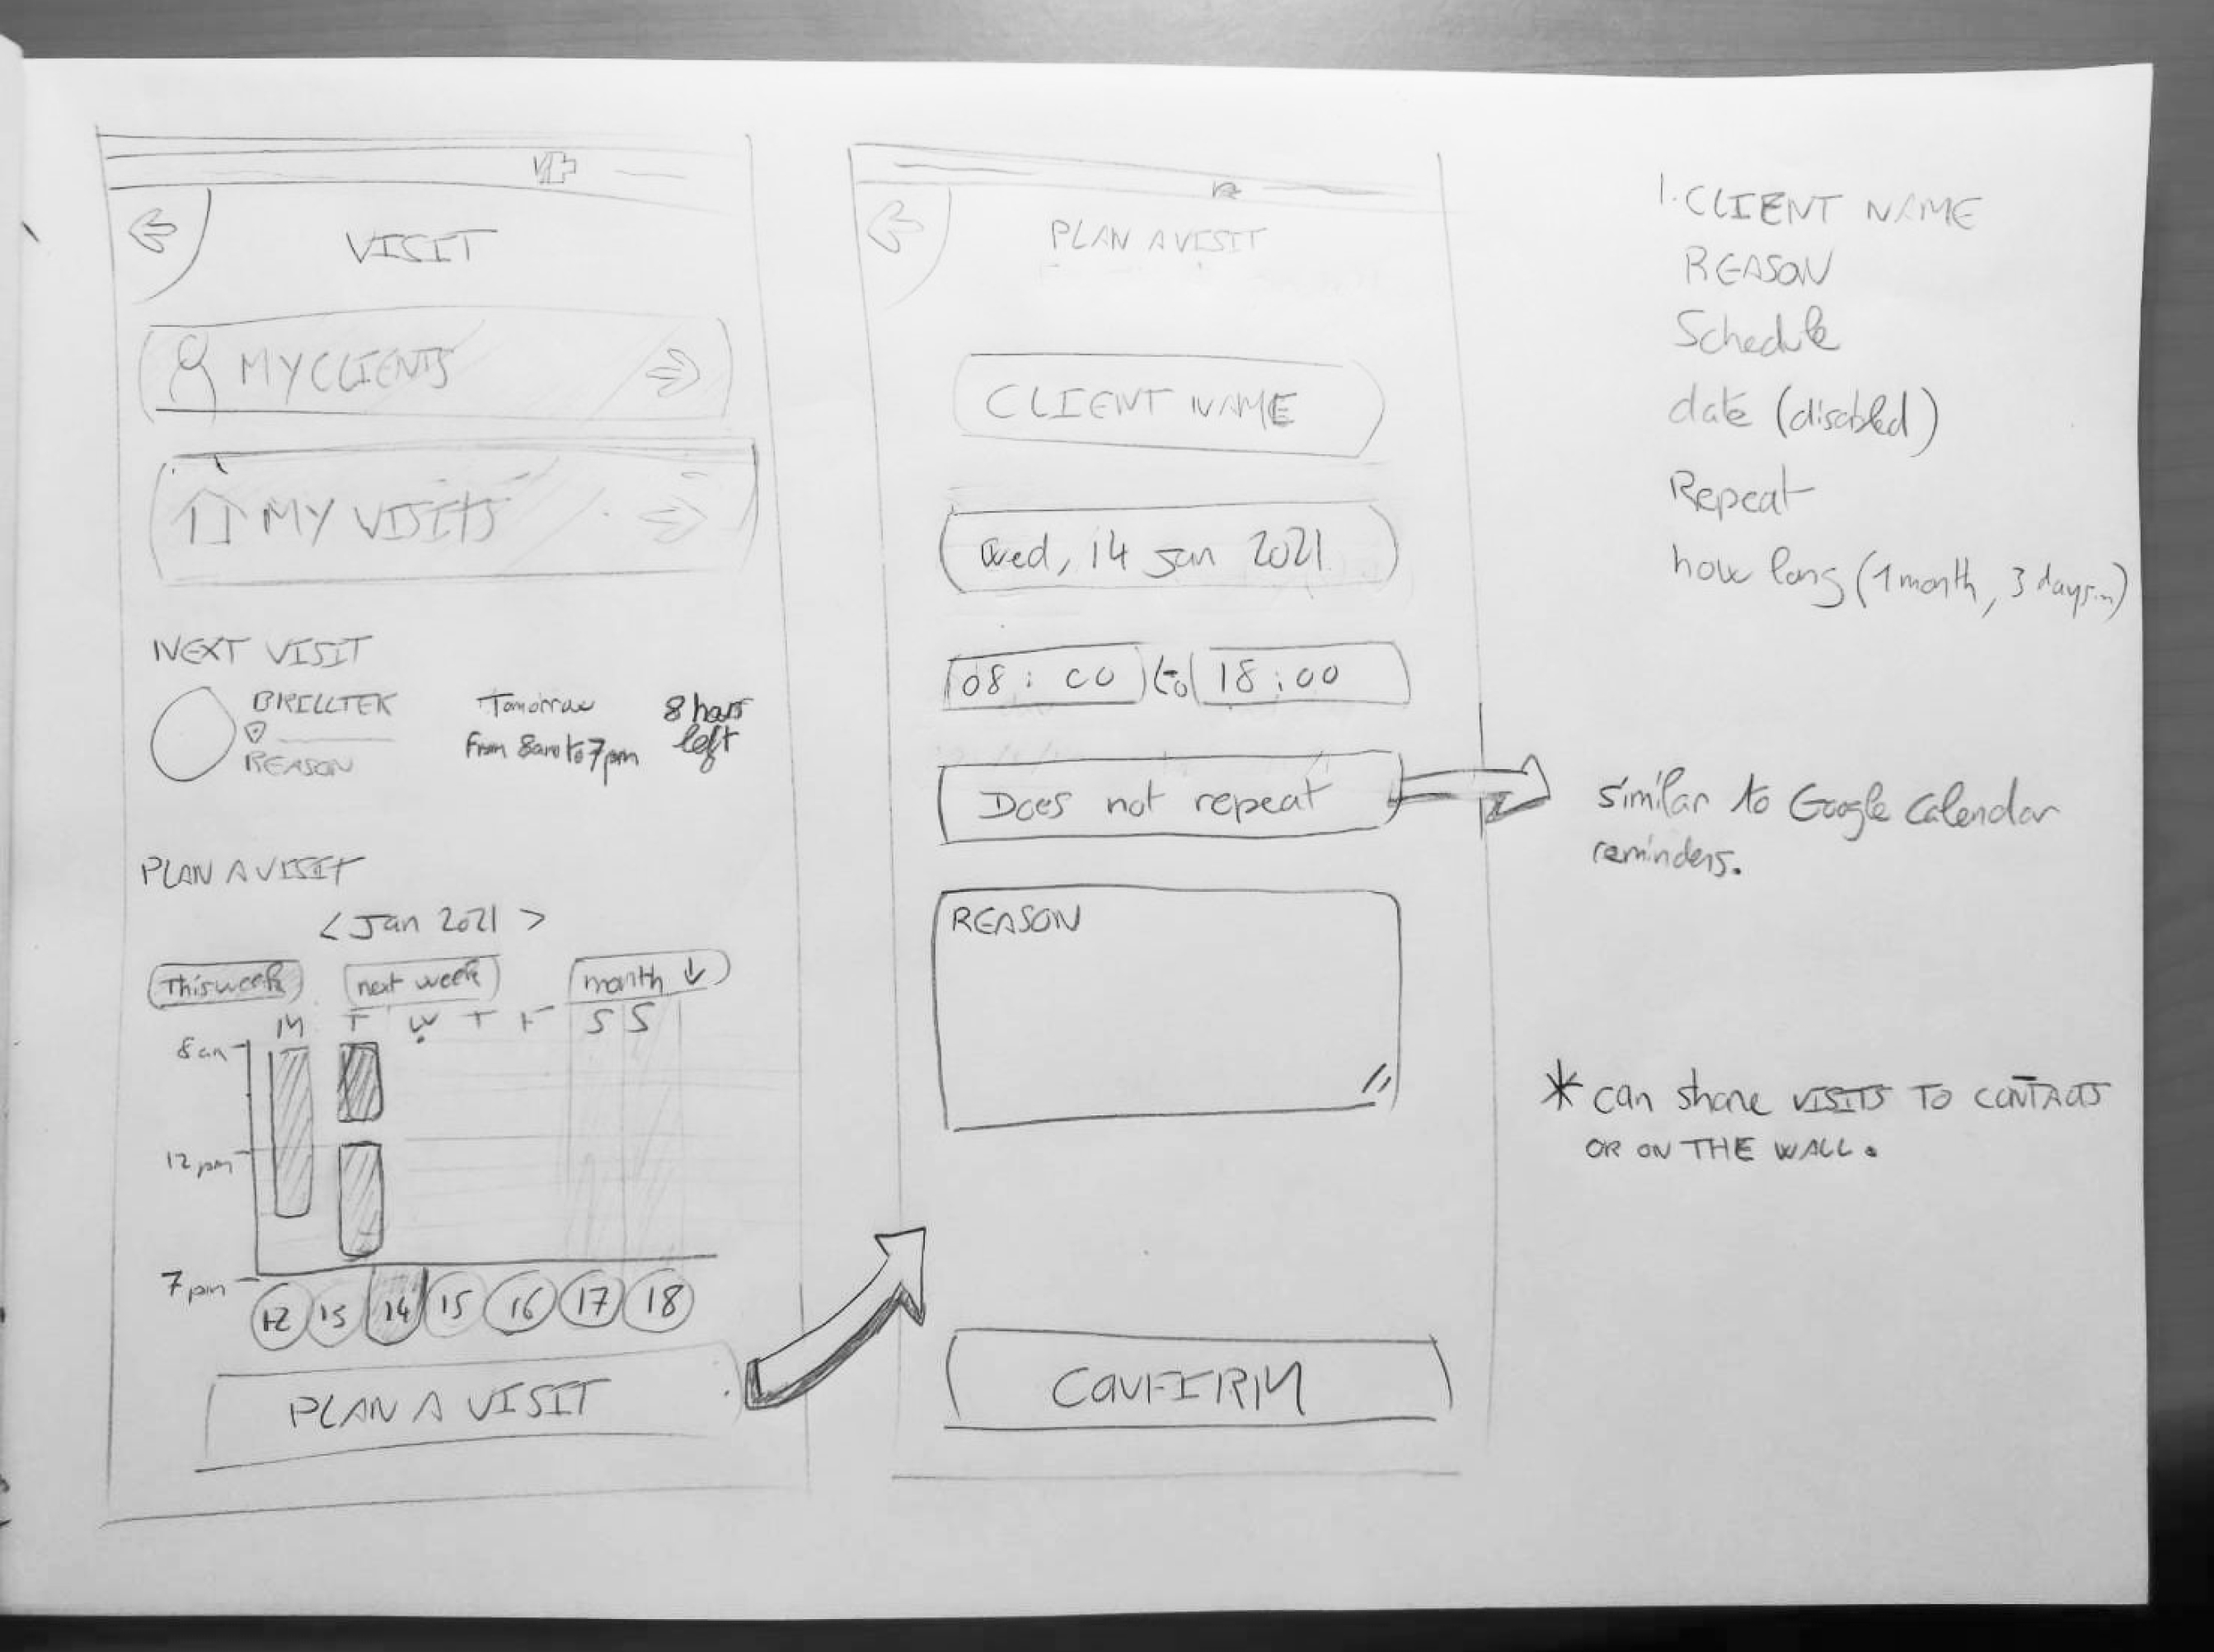 VISIT
MY CLIENTS
MY VISITS
NEXT VISIT
BRILLTEK
REASON
Tomorrow
From 8am to 7pm
8 hours
left
PLAN A VISIT
< Jan 2021 >
This week
next week
month ↓
M T W T F S S
8am
12pm
7pm
12 13 14 15 16 17 18
PLAN A VISIT
PLAN A VISIT
CLIENT NAME
Wed, 14 Jan 2021
08:00 to 18:00
Does not repeat
REASON
CONFIRM
1. CLIENT NAME
REASON
Schedule
date (disabled)
Repeat
how long (1 month, 3 days...)
similar to Google Calendar
reminders.
* can share VISITS TO CONTACTS
OR ON THE WALL.